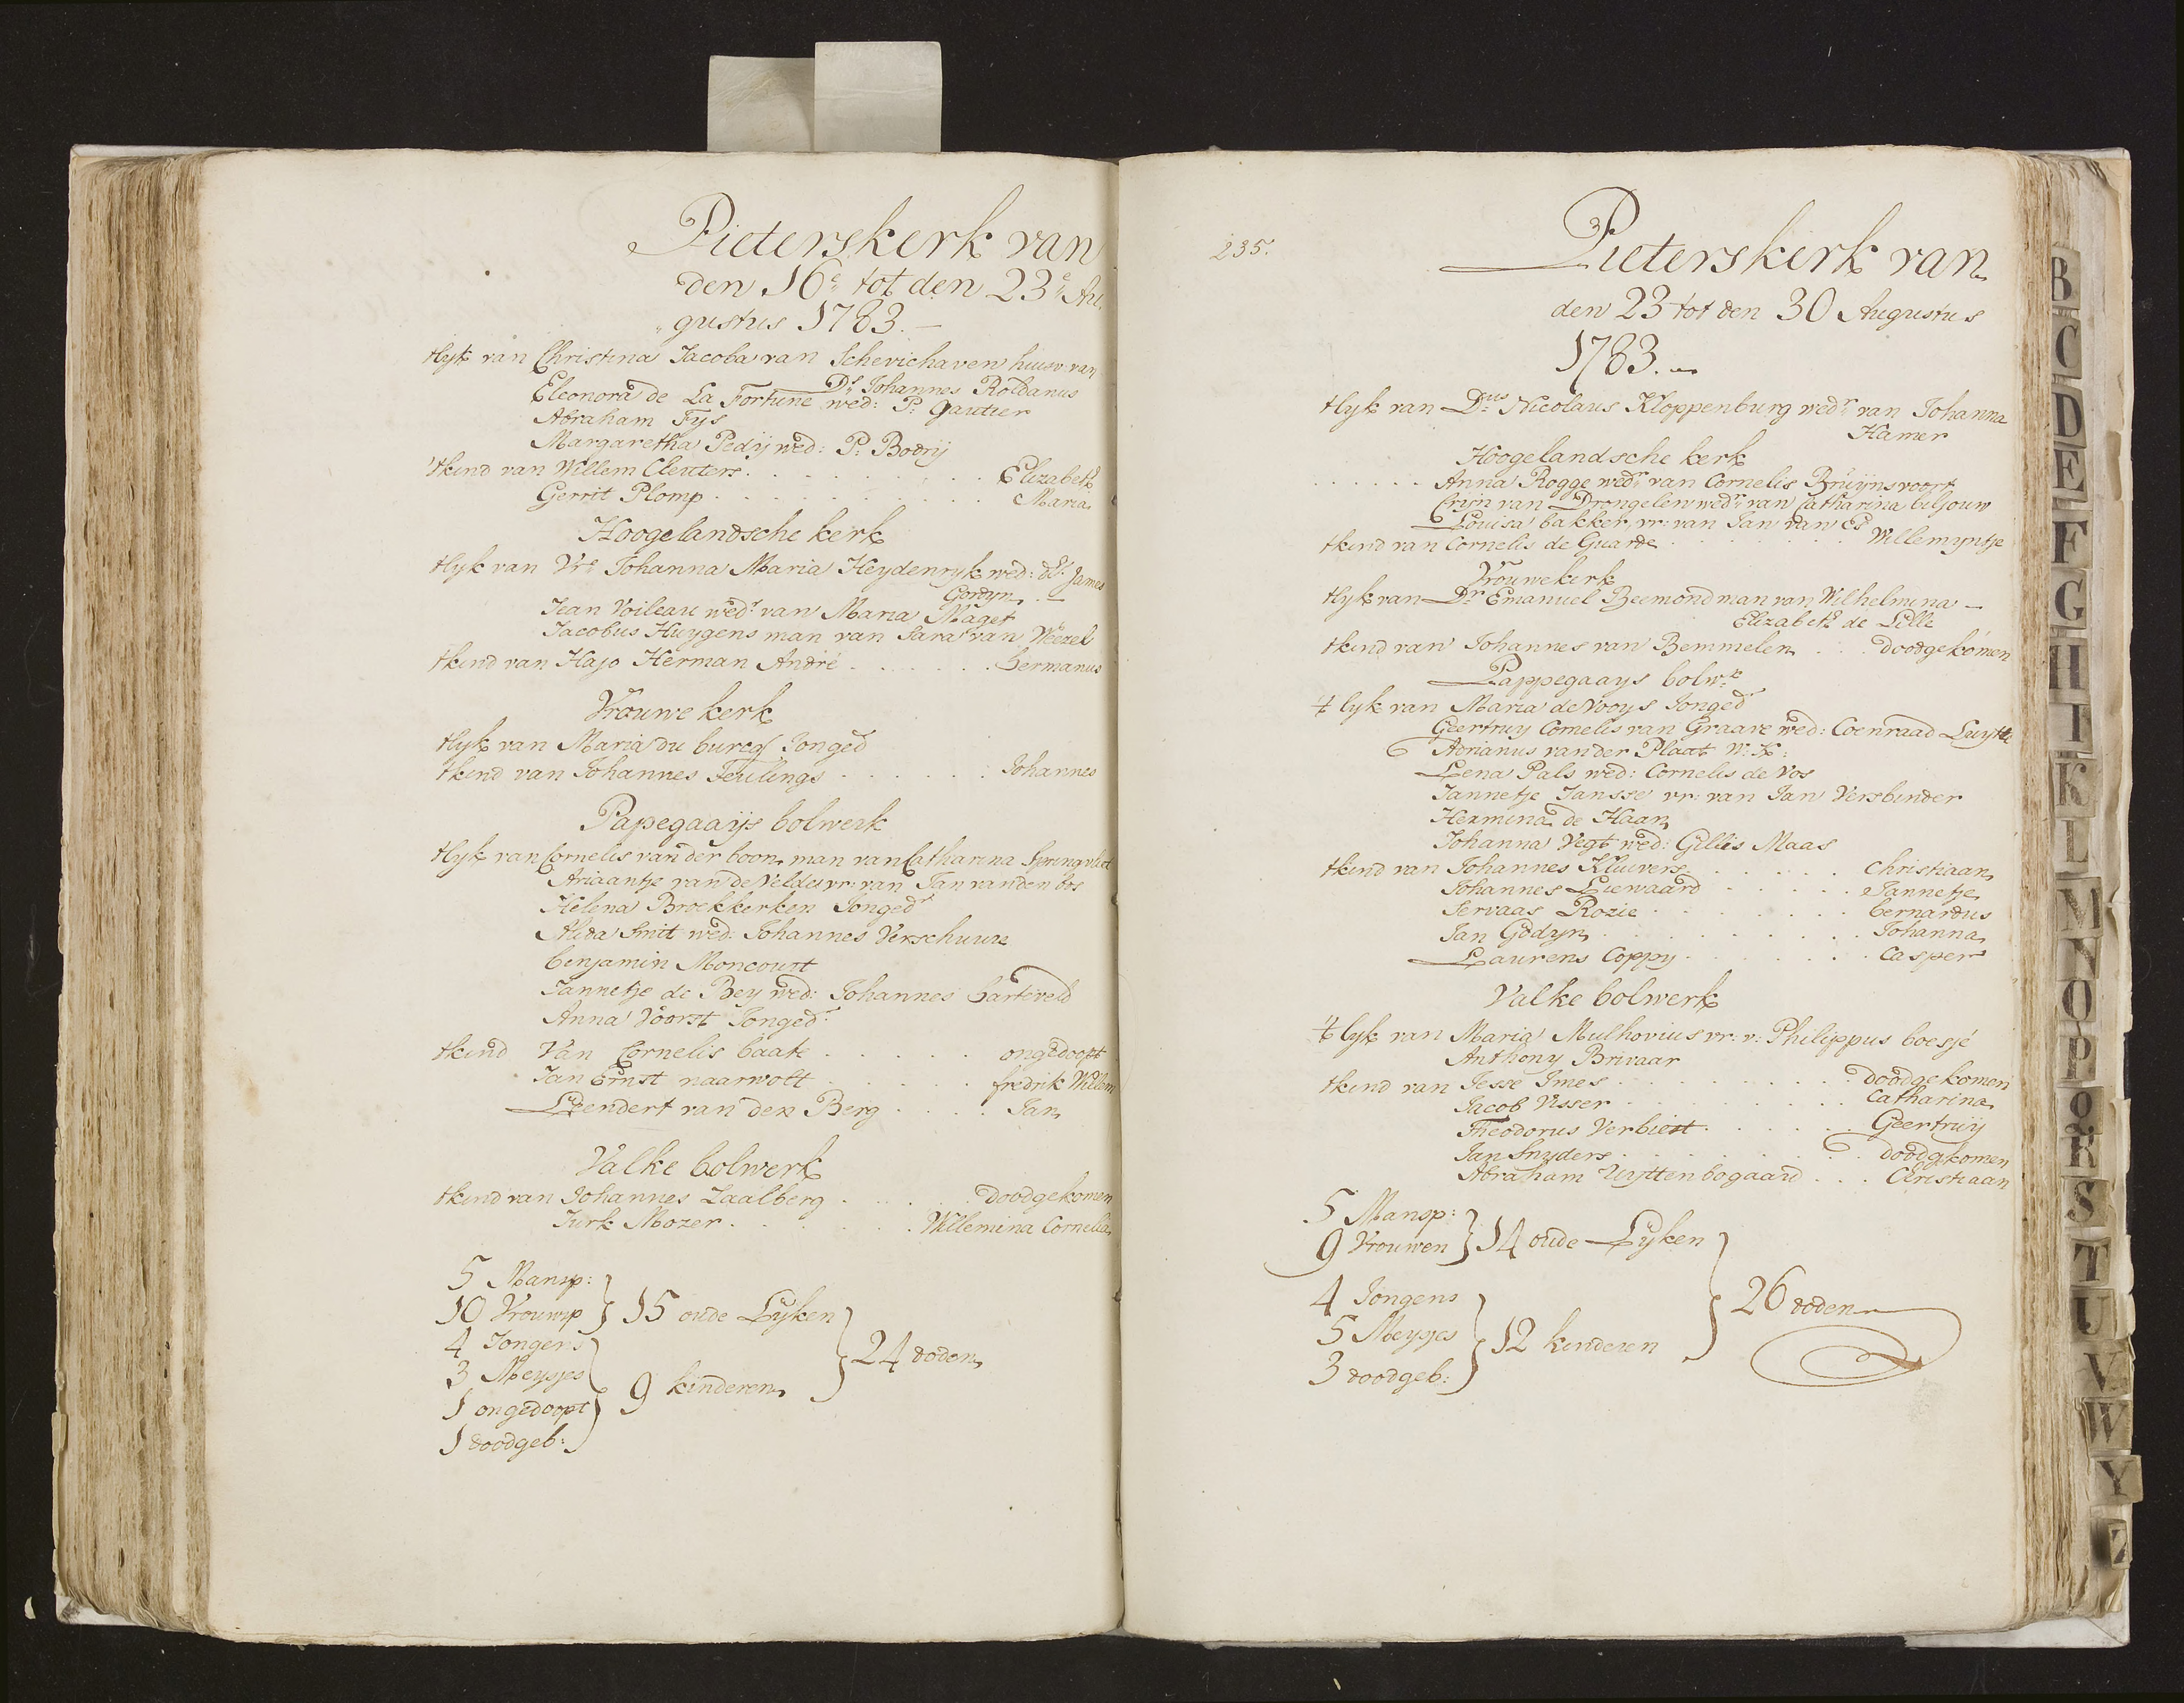 Pieterskerk van
den 16e tot den 23e Au
gustus 1783.—
tlyk van Christina Jacoba van Schevichaven huisv: van
Ds Johannes Roldanus
Eleonora de La Fortune wed: P: Gautier
Abraham Fys
Margaretha Pedij wed: P: Bodrij
'tkind van Willem Cleuters . . . . . . . . . Elizabeth
Gerrit Plomp . . . . . . . . . . Maria
Hoogelandsche kerk
tlyk van Vre Johanna Maria Heydenryk wed: ds: James
Gordyn.—
Jean Voileau wedr van Maria Maget
Jacobus Huygens man van Sara van Weezel
tkind van Hajo Herman André . . . . . . . hermanus
Vrouwe kerk
tlyk van Maria du burcq Jonged
tkind van Johannes Teulings . . . . . . Johannes
Papegaaijs bolwerk
tlyk van Cornelis van der boon man van Catharina Springvliet
Ariaantje van de Velde vr: van Jan van den bos
Helena Broekkerken Jongedr
Alida Smit wed: Johannes Verschuure
benjamin Moncourt
Jannetje de Bey wed: Johannes barteveld
Anna Voorst Jongedr
tkind Van Cornelis baate . . . . . ongedoopt
Jan Ernst naarwolt . . . . . fredrik Willem
Leendert van den Berg . . . . Jan
Valke bolwerk
tkind van Johannes Zaalberg . . . . . doodgekomen
Jurk Mozer . . . . . . . Willemina Cornelia
5 Mansp:
10 Vrouwsp } 15 oude Lyken
4 Jongens
3 Meysjes
} 24 doden
1 ongedoopt } 9 kinderen
1 doodgeb:
235.
Pieterskerk van
den 23 tot den 30 Augustus
1783.
tlyk van Dus Nicolaus Kloppenburg wedr van Johanna
Hamer
Hoogelandsche kerk
. . . . . . Anna Rogge wedr van Cornelis Bruijnsvoort
Crijn van Drongelen wedr van Catharina biljouw
Louisa bakker vr: van Jan van Es
tkind van Cornelis de Guarde . . . . . . . Willemyntje
Vrouwekerk
tlyk van Dr Emanuel Beemond man van Wilhelmina —
Elizabeth de Lille
tkind van Johannes van Bemmelen . . . doodgekomen
Pappegaays bolwk
't lyk van Maria de Vooys Jongedr
Geertruy Cornelis van Graave wed: Coenraad Luytte
Adrianus van der Plaat W: K:
Lena Pals wed: Cornelis de Vos
Jannetje Jansse vr: van Jan Versbinder
Hermina de Haan
Johanna Vegt wed: Gillis Maas
tkind van Johannes Kluivers . . . . . . Christiaan
Johannes Liewaard . . . . . Jannetje
Servaas Rozie . . . . . . . bernardus
Jan Godyn . . . . . . . . . Johanna
Laurens Coppy . . . . . . . Casper
Valke bolwerk
't lyk van Maria Mulhovius vr: v: Philippus boesjé
Anthony Brivaar
tkind van Jesse Imes . . . . . . . . doodgekomen
Jacob Visser . . . . . . . . . Catharina
Theodorus Verbiest . . . . . . Geertruy
Jan Snyders . . . . . . . . . doodgekomen
Abraham Uyttenbogaard . . . Christiaan
5 Mansp:
9 Vrouwen } 14 oude Lyken
4 Jongens
} 26 doden
5 Meysjes
} 12 kinderen
3 doodgeb:
B
C
D
E
F
G
H
I
K
L
M
N
O
P
Q
R
S
T
U
V
W
Y
Z